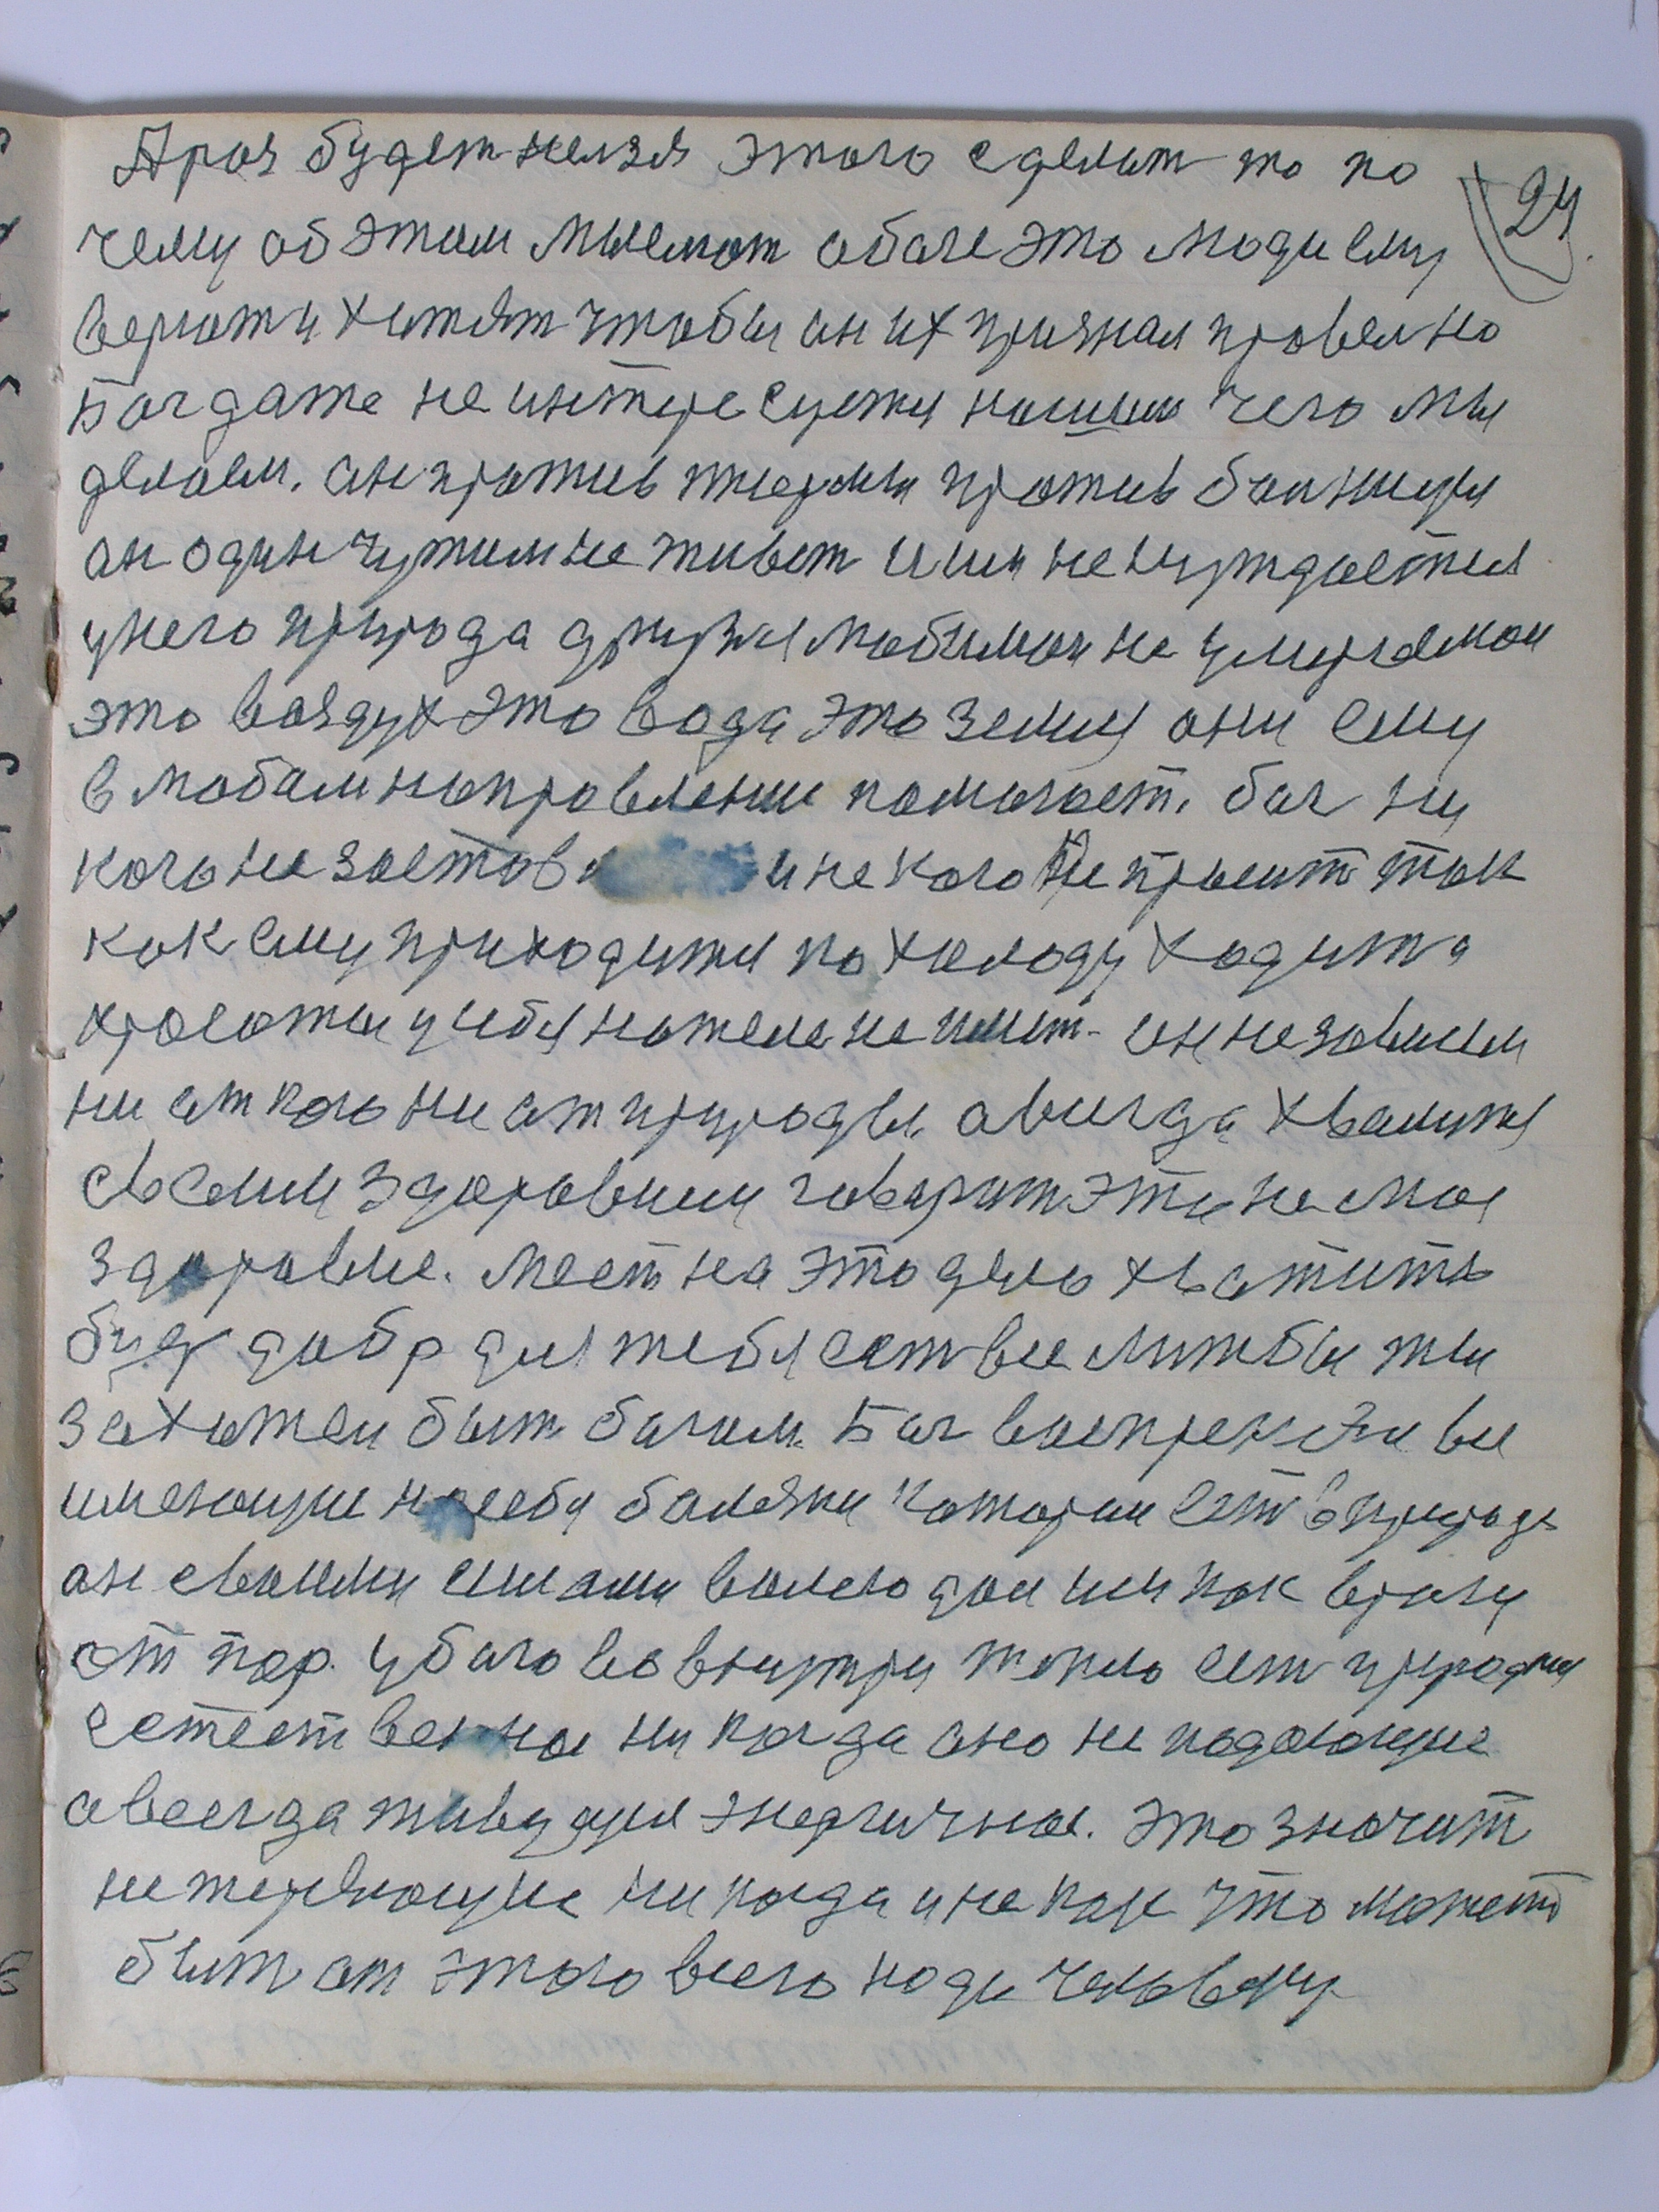 Ароз будет нелзя этого сделит то по
24.
чему об этом мыслят а боге это люди ему
верют и хотят чтобы он их признал провелно
Бог даже не интересуетя нашим чего мы
делоем. он против тюрмы против болницы
он один чужим не живёт и им не нуждаетия
у него природа друзья любимои не умираемои
это воздух это вода это земля они ему
в любом нопровлении помогоет. бог ни
кого не заетов и не кого не просит ток
кок ему приходитя по холоду ходит а
кросоты у небя на теле не имит он не зовисим
ни от кого ни от природы. а вигда хвалитя
своими здоровием говорит эти на мое
здоровие. Мест на это дело хватить
буд добр для тебя ест все литбы ты
захотел быт богом. Бог воспрек все
имеющие на себя болячки которые ест в природе
он своими силами волею дои им как врагу
от пор. у бога во внутри тепло ест природы
естественное ни когда оно не подающие
а всегда живущия энергичное. это значит
не теряющие ни когда и не как что может
быт от этого всего нади человеку